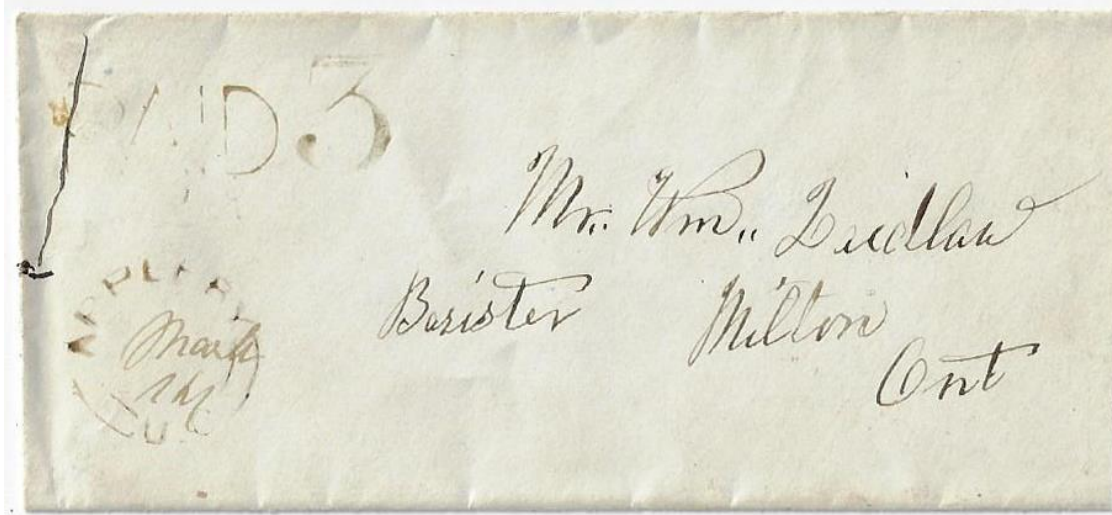 PAID 3
Mr. Wm. Leidlaw
Barister Milton
Ont
APPLEBY
U.C